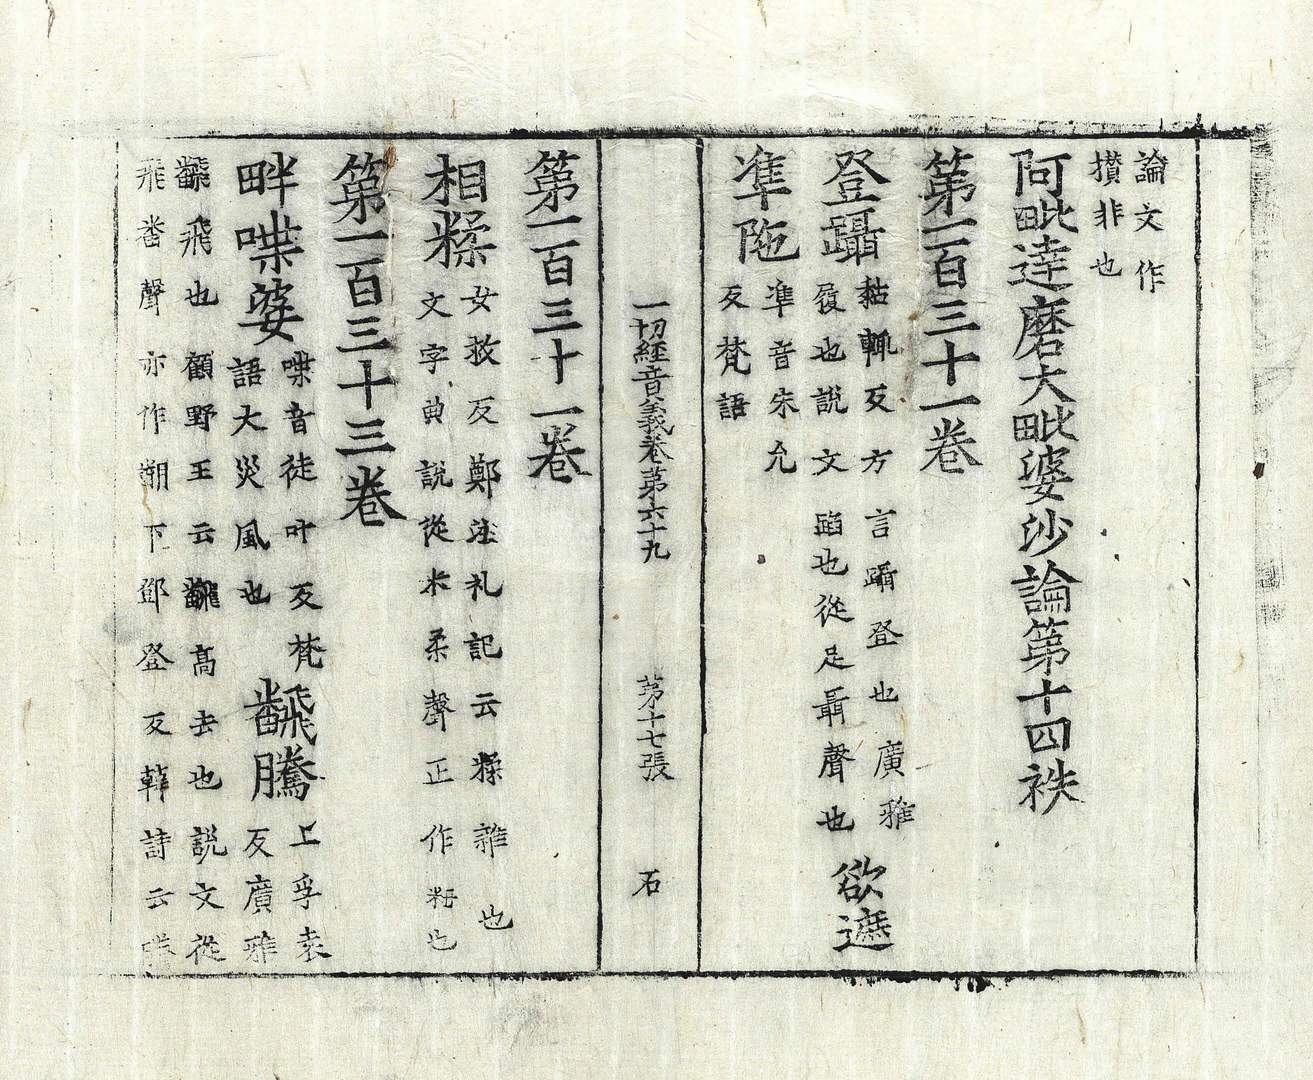 論文作
攢非也
阿毗達磨大毗婆沙論第十四袟
第一百三十一卷
登躡
黏輒反方言躡登也廣雅
履也說文蹈也從足聶聲也
欲遮
准陁
准音朱允
反梵語
一切經音義卷第六十九 第十七張 石
第一百三十一卷
相糅
女救反鄭注礼記云糅雜也
文字典說從米柔聲正作粈也
第一百三十三卷
畔喋婆
喋音徒叶反梵
語大災風也
飜騰
上孚袁
反廣雅
飜飛也顧野王云飜高去也說文從
飛番聲亦作翮下鄧登反韓詩云